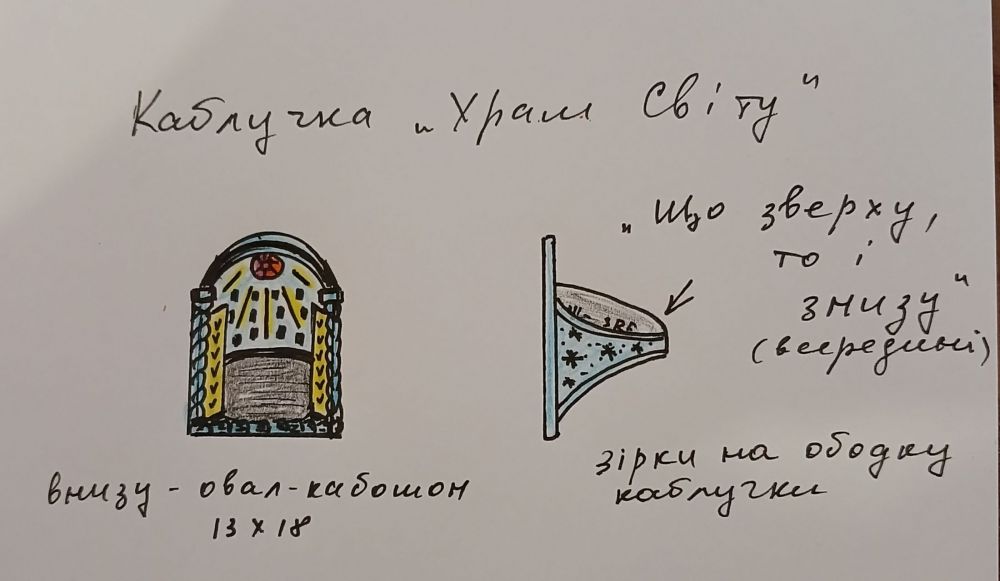 Каблучка „Храм Світу"
„Що зверху,
то і
знизу"
(всередині)
зірки на ободку
каблучки
внизу - овал-кабошон
13 х 18